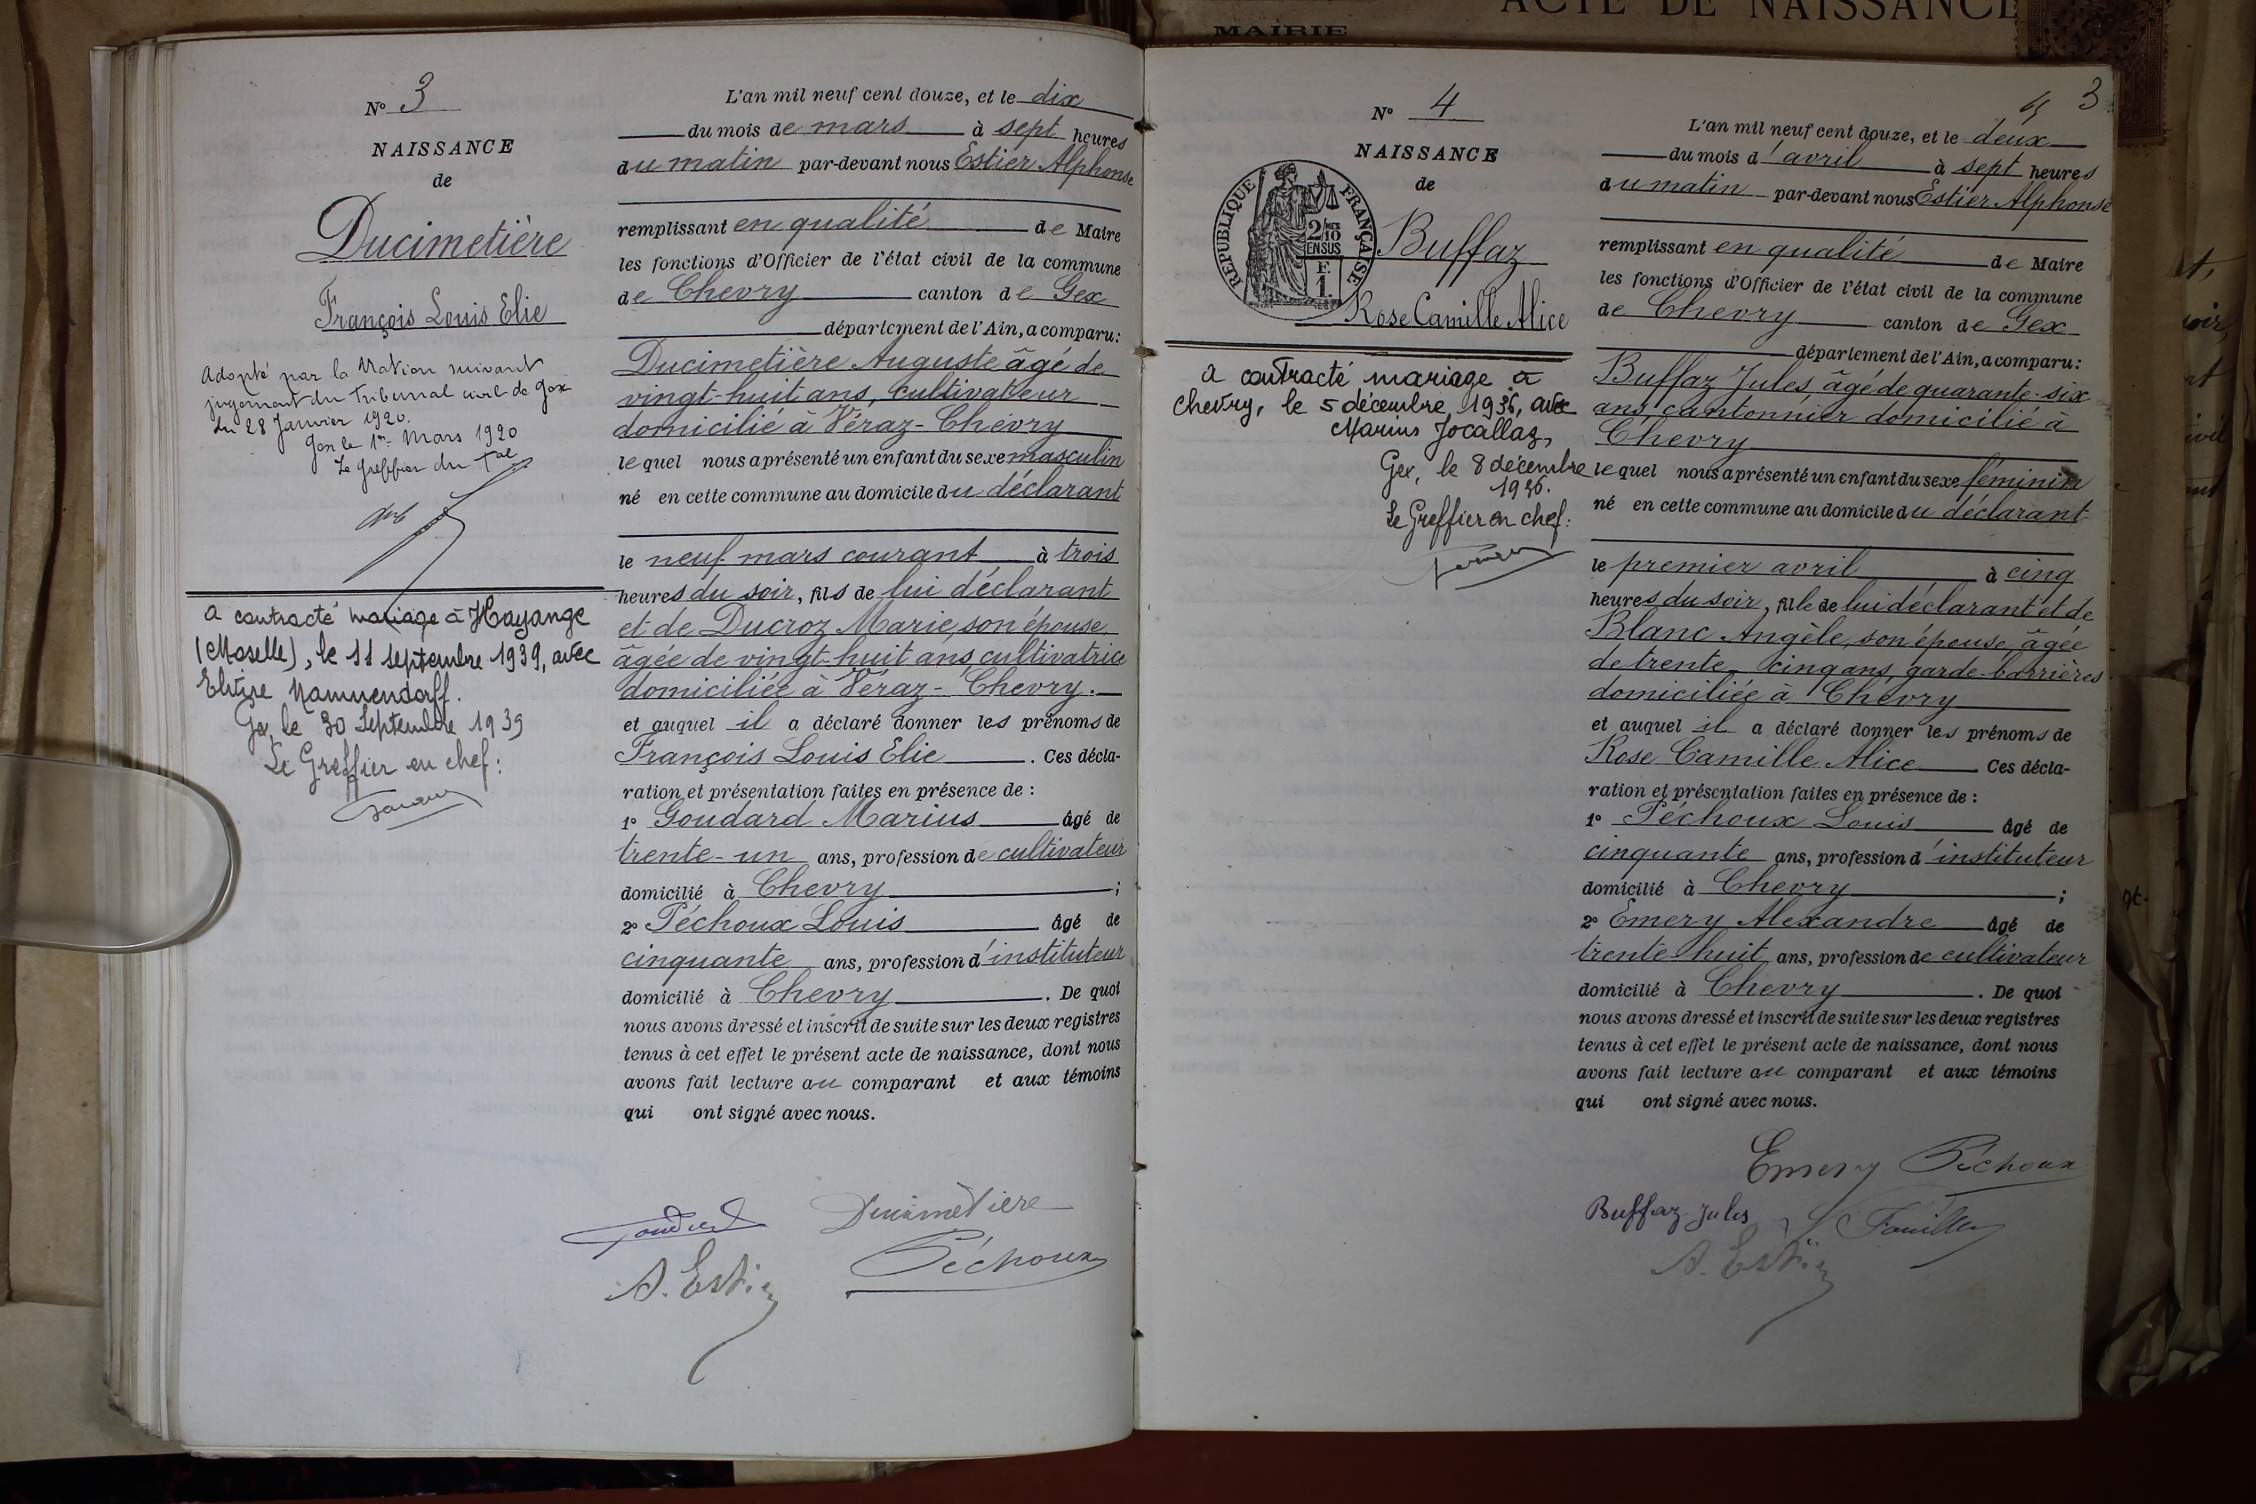 MAIRIE
ACTE DE NAISSANCE
N° 3
NAISSANCE
de
Ducimetière
François Louis Elie
Adopté par la Nation suivant
jugement du Tribunal civil de Gex
du 28 Janvier 1920.
Gex le 1er Mars 1920
Le Greffier du Tal
a contracté mariage à Hayange
(Moselle), le 11 septembre 1939, avec
Nannendorff.
Gex, le 30 Septembre 1939
Le Greffier en chef:
L'an mil neuf cent douze, et le dix
du mois de mars à sept heures
du matin par-devant nous Estier Alphonse
remplissant en qualité de Maire
les fonctions d'Officier de l'état civil de la commune
de Chevry canton de Gex
département de l'Ain, a comparu:
Ducimetière Auguste âgé de
vingt-huit ans, cultivateur
domicilié à Véraz-Chevry
lequel nous a présenté un enfant du sexe masculin
né en cette commune au domicile du déclarant
le neuf mars courant à trois
heures du soir, fils de lui déclarant
et de Ducroz Marie, son épouse,
âgée de vingt-huit ans, cultivatrice
domiciliée à Véraz-Chevry.
et auquel il a déclaré donner les prénoms de
François Louis Elie. Ces décla-
ration et présentation faites en présence de :
1° Goudard Marius âgé de
trente-un ans, profession de cultivateur
domicilié à Chevry ;
2° Péchoux Louis âgé de
cinquante ans, profession d'instituteur
domicilié à Chevry. De quoi
nous avons dressé et inscrit de suite sur les deux registres
tenus à cet effet le présent acte de naissance, dont nous
avons fait lecture au comparant et aux témoins
qui ont signé avec nous.
Goudard Ducimètiere
A. Estier Péchoux
4 3
N° 4
NAISSANCE
de
REPUBLIQUE FRANÇAISE
2/10 EN SUS
F. 1
Buffaz
Rose Camille Alice
a contracté mariage à
Chevry, le 5 décembre 1936, avec
Marius Jocallaz,
Gex, le 8 décembre
1936.
Le Greffier en chef:
L'an mil neuf cent douze, et le deux
du mois d'avril à sept heures
du matin par-devant nous Estier Alphonse
remplissant en qualité de Maire
les fonctions d'Officier de l'état civil de la commune
de Chevry canton de Gex
département de l'Ain, a comparu:
Buffaz Jules, âgé de quarante-six
ans, cantonnier domicilié à
Chevry
lequel nous a présenté un enfant du sexe féminin
né en cette commune au domicile du déclarant
le premier avril à cinq
heures du soir, fille de lui déclarant et de
Blanc Angèle, son épouse, âgée
de trente-cinq ans, garde-barrières
domiciliée à Chevry
et auquel il a déclaré donner les prénoms de
Rose Camille Alice Ces décla-
ration et présentation faites en présence de :
1° Péchoux Louis âgé de
cinquante ans, profession d'instituteur
domicilié à Chevry ;
2° Emery Alexandre âgé de
trente huit ans, profession de cultivateur
domicilié à Chevry. De quoi
nous avons dressé et inscrit de suite sur les deux registres
tenus à cet effet le présent acte de naissance, dont nous
avons fait lecture au comparant et aux témoins
qui ont signé avec nous.
Emery Péchoux
Buffaz Jules
A. Estier